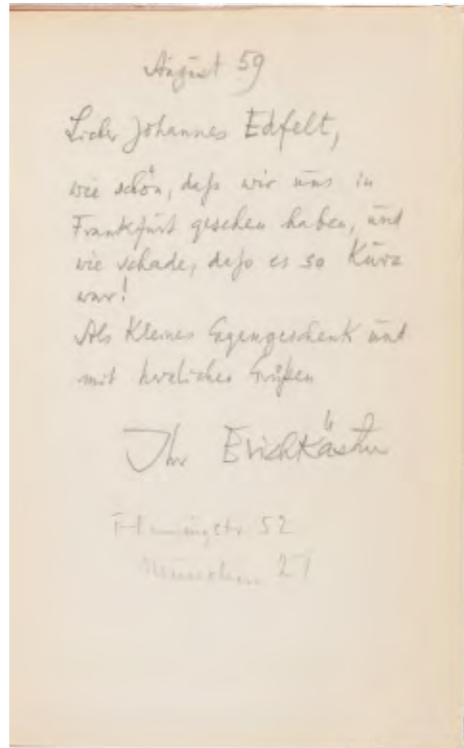 August 59
Lieber Johannes Edfelt,
wie schön, daß wir uns in
Frankfurt gesehen haben, und
wie schade, daß es so kurz
war!
Als kleines Gegengeschenk und
mit herzlichen Grüßen
Ihr Erich Kästner
Flemingstr. 52
München 27